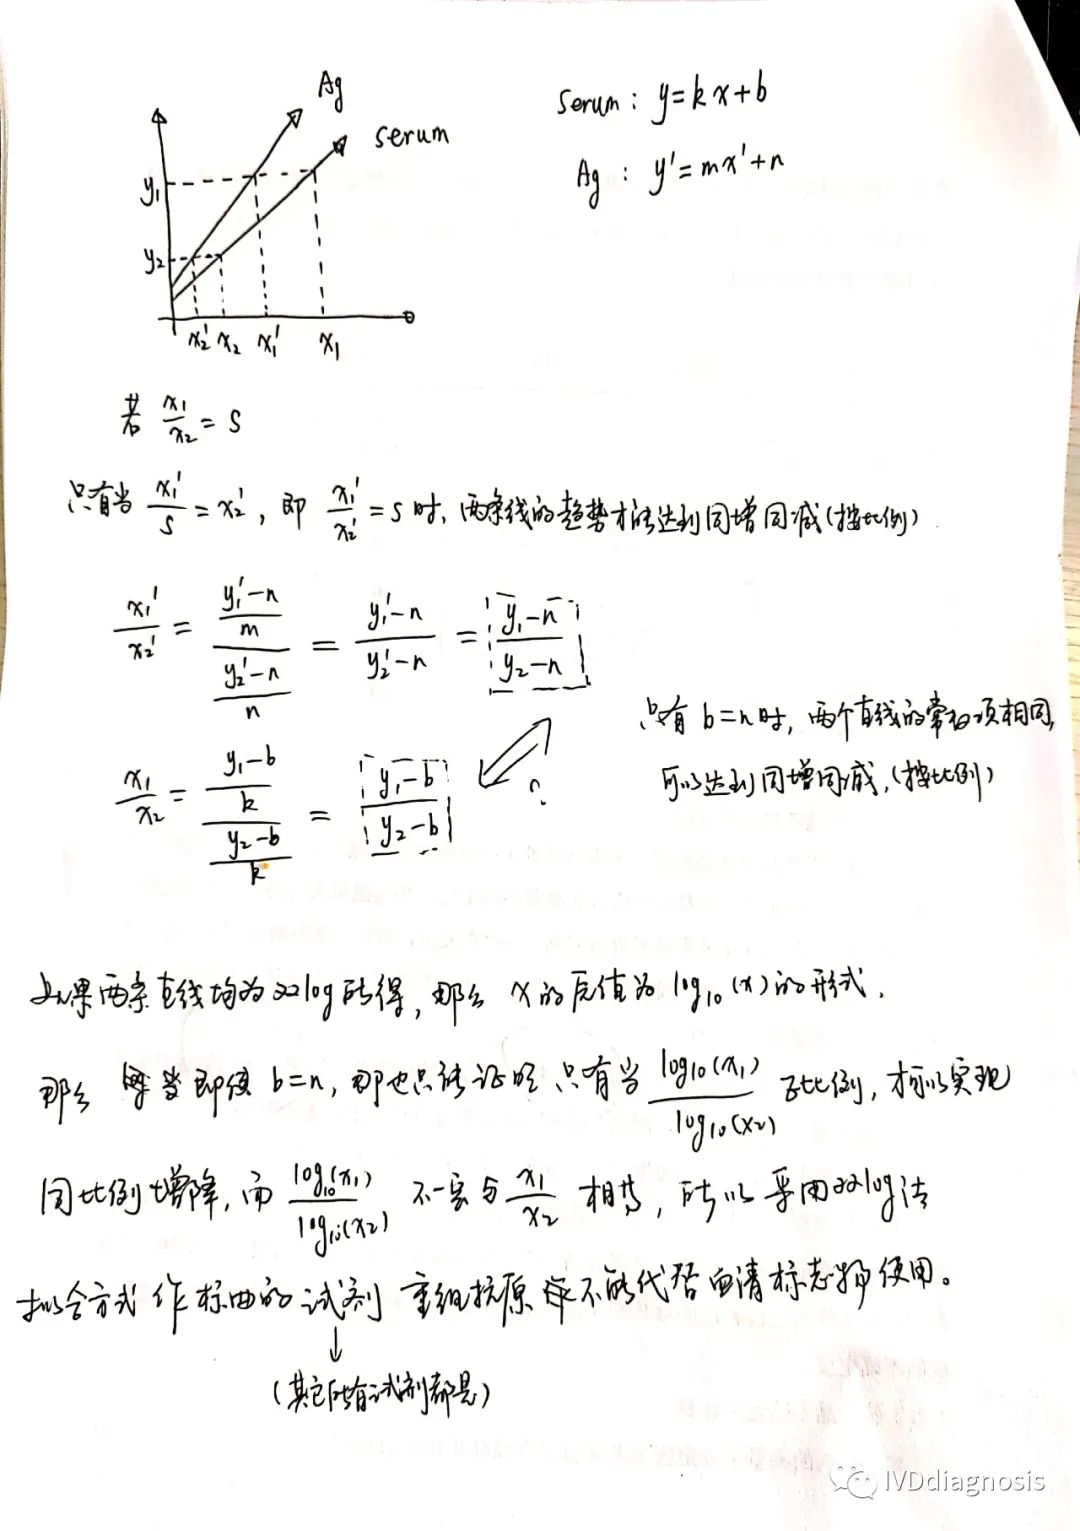 Ag
serum
y₁
y₂
x₂' x₂ x₁' x₁
Serum: y=kx+b
Ag: y'=mx'+n
若 x₁/x₂ = S
只有当 x₁'/S = x₂', 即 x₁'/x₂' = S 时, 两条线的趋势才能达到同增同减(按比例)
x₁'/x₂' = ((y₁'-n)/m)/((y₂'-n)/n) = (y₁'-n)/(y₂'-n) = (y₁-n)/(y₂-n)
?
x₁/x₂ = ((y₁-b)/k)/((y₂-b)/k) = (y₁-b)/(y₂-b)
只有 b=n 时, 两个直线的常数项相同,
可以达到同增同减, (按比例)
如果两条直线均为双log所得, 那么 x 的反值为 log₁₀(x) 的形式.
那么 即使 b=n, 那也只能证明 只有当 log₁₀(x₁)/log₁₀(x₂) 成比例, 才可以实现
同比例增降, 而 log₁₀(x₁)/log₁₀(x₂) 不一定与 x₁/x₂ 相等, 所以采用双log法
拟合方式作标曲的试剂 重组抗原 不能代替血清标志物使用。
↓
(其它所有试剂都是)
IVDdiagnosis